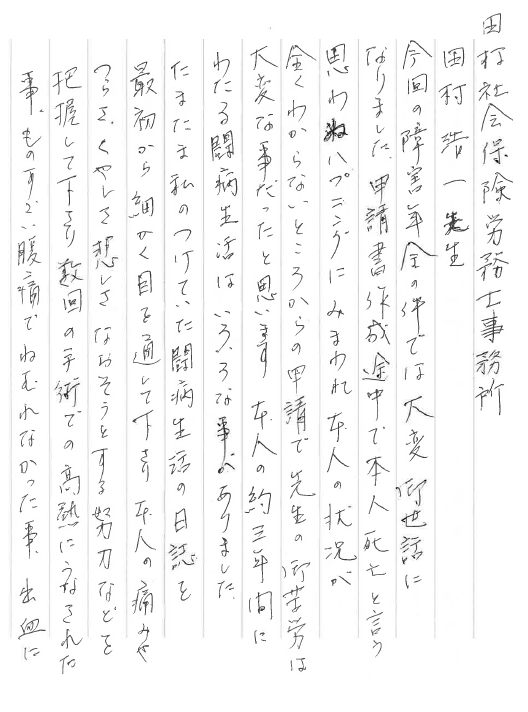 田村社会保険労務士事務所
田村 浩一先生
今回の障害年金の件では大変御世話に
なりました。申請書作成途中で本人死亡と言う
思わぬハプニングにみまわれ本人の状況が
全くわからないところからの申請で先生の御苦労は
大変な事だったと思います 本人の約三年間に
わたる闘病生活はいろいろな事がありました。
たまたま私のつけていた闘病生活の日誌を
最初から細かく目を通して下さり 本人の痛みや
つらさ、くやしさ 悲しさ なおそうとする努力などを
把握して下さり 数回の手術での高熱にうなされた
事、ものすごい腹痛でねむれなかった事、出血に